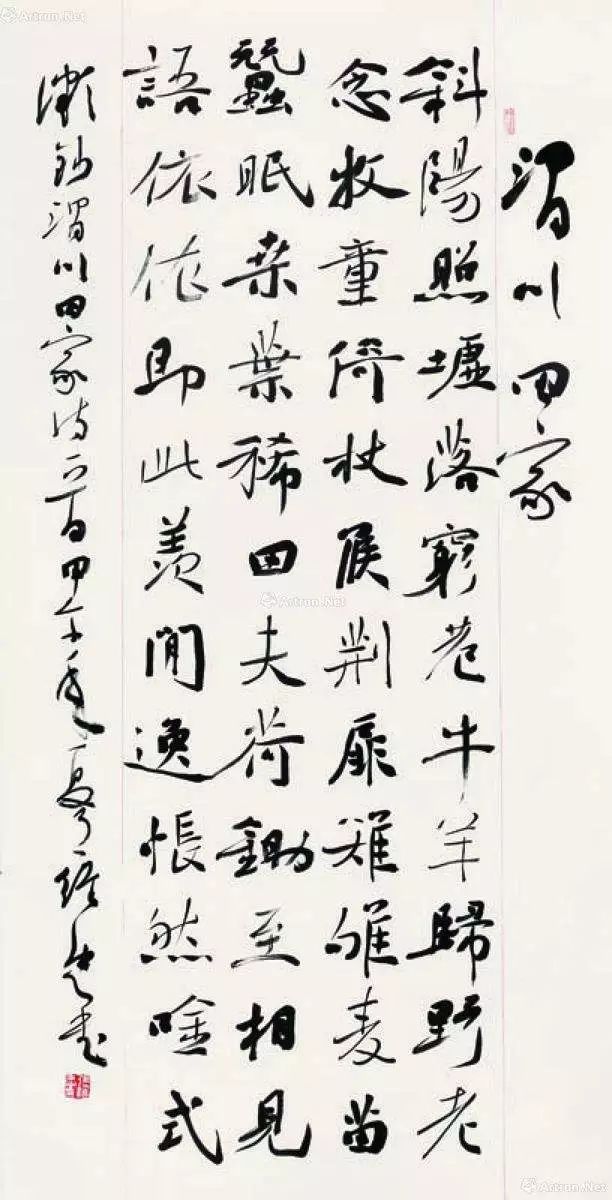 渭川田家
斜陽照墟落窮巷牛羊歸野老
念牧童倚杖候荆扉雉雊麦苗
蠶眠桒葉稀田夫荷鋤至相見
語依依即此羡閒逸悵然唫式
微鈔渭川田家诗一首甲午年夏
Artron.Net
Artron.Net
Artron.Net
Artron.Net